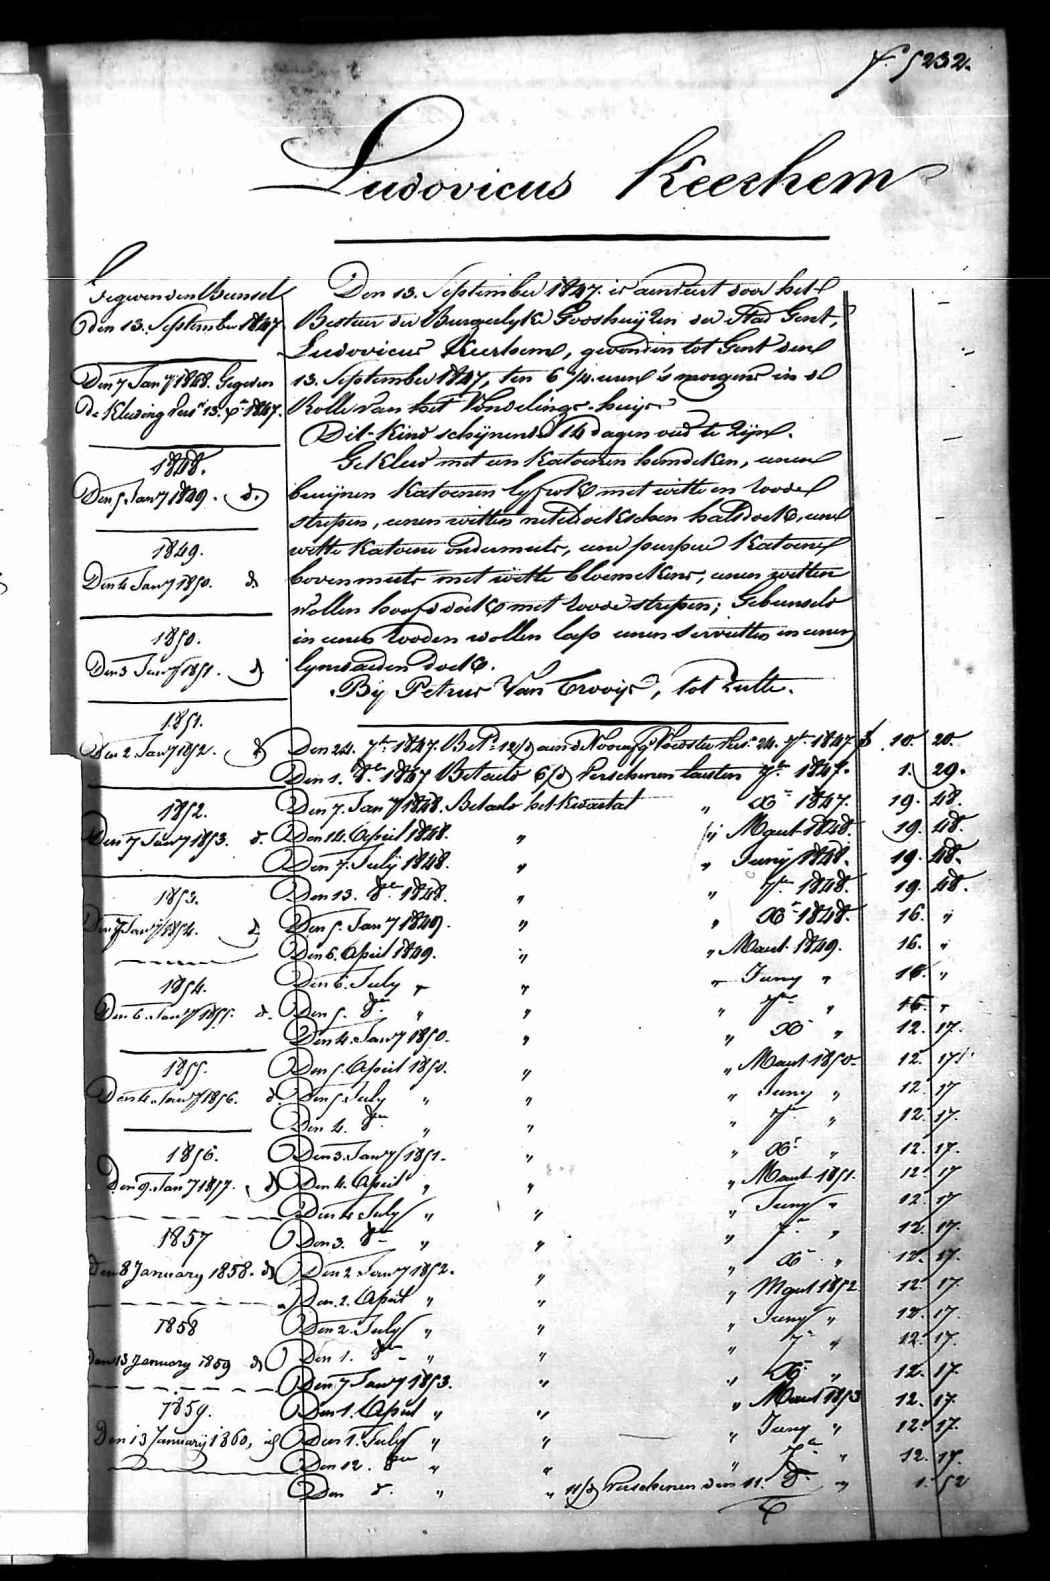 f° 5232.
Ludovicus Keerhem
Gegeven den Bunsel
den 13. September 1847
Den 7 Jan.ʸ 1848. Gegeven
de Kleding
1848.
Den 5. Jan.ʸ 1849. d.
1849.
Den 4 Jan.ʸ 1850. d
1850.
Den 3 Jan.ʸ 1851. d
1851.
Den 2. Jan.ʸ 1852. d
1852.
Den 7 Jan.ʸ 1853. d.
1853.
Den 7 Jan.ʸ 1854. d
1854.
Den 6. Jan.ʸ 1855. d.
1855.
Den 4. Jan.ʸ 1856. d.
1856.
Den 9. Jan.ʸ 1857. d
1857
den 8 January 1858. d
1858
den 13 January 1859 d
1859.
Den 13 Januarij 1860, id
Den 13. September 1847. is aenveert door het
Bestuer der Burgerlyke Godshuijzen der Stad Gent,
Ludovicus Keerhem, gevonden tot Gent den
13. September 1847, ten 6 ¼ uren 's morgens in de
Rolle van het Vondelings-huijs
Dit Kind schijnende 14 dagen oud te zijn.
Gekleed met een Katoenen hemdeken, eenen
bruijnen Katoenen lyfrok met witte en roode
strepen, eenen witten neteldoekschen halsdoek, eene
witte Katoene ondermuts, eene purpere Katoene
bovenmuts met witte bloemekens, eenen witten
wollen hoofddoek met roode strepen; Gebunseld
in eenen rooden wollen lap eenen servetten en eenen
lynwaeden doek.
Bij Petrus Van Crooijs, tot Zulte.
Den 24. 7.ʳ 1847. Bet.ᵈ 12/d aen de Voorgᵉ Voedster 24. 7.ʳ 1847 10. 20.
Den 1. 8.ʳ 1847 Betaeld 6/d Verschenen laesten 7.ʳ 1847. 1. 29.
Den 7. Jan.ʸ 1848. Betaeld het kwartael " X.ʳ 1847. 19. 48.
Den 14. April 1848. " " Maert 1848. 19. 48.
Den 7. July 1848. " " Juny 1848. 19. 48.
Den 13. 8.ʳ 1848. " " 7.ʳ 1848. 19. 48.
Den 5. Jan.ʸ 1849. " " X.ʳ 1848. 16. "
Den 6. April 1849. " " Maert 1849. 16. "
Den 6. July " " " Juny " 16. "
Den 5. 8.ʳ " " " 7.ʳ " 16. "
Den 4. Jan.ʸ 1850. " " X.ʳ " 12. 17.
Den 5. April 1850. " " Maert 1850. 12. 17.
Den 5. July " " " Juny " 12. 17
Den 4. 8.ʳ " " " 7.ʳ " 12. 17.
Den 3. Jan.ʸ 1851. " " X.ʳ " 12. 17.
Den 4. April " " " Maert 1851. 12. 17
Den 4 July " " " Juny " 12. 17
Den 3. 8.ʳ " " " 7.ʳ " 12. 17.
Den 2. Jan.ʸ 1852. " " X.ʳ " 12. 17.
Den 2. April " " " Maert 1852 12. 17.
Den 2. July " " " Juny " 12. 17.
Den 1. 8.ʳ " " " 7.ʳ " 12. 17.
Den 7 Jan.ʸ 1853. " " X.ʳ " 12. 17.
Den 1. April " " " Maert 1853 12. 17.
Den 1. July " " " Juny " 12. 17.
Den 12. 8.ʳ " " " 7.ʳ " 12. 17.
Den d. " " 11/d Verschenen den 11. 8.ʳ " 1. 52